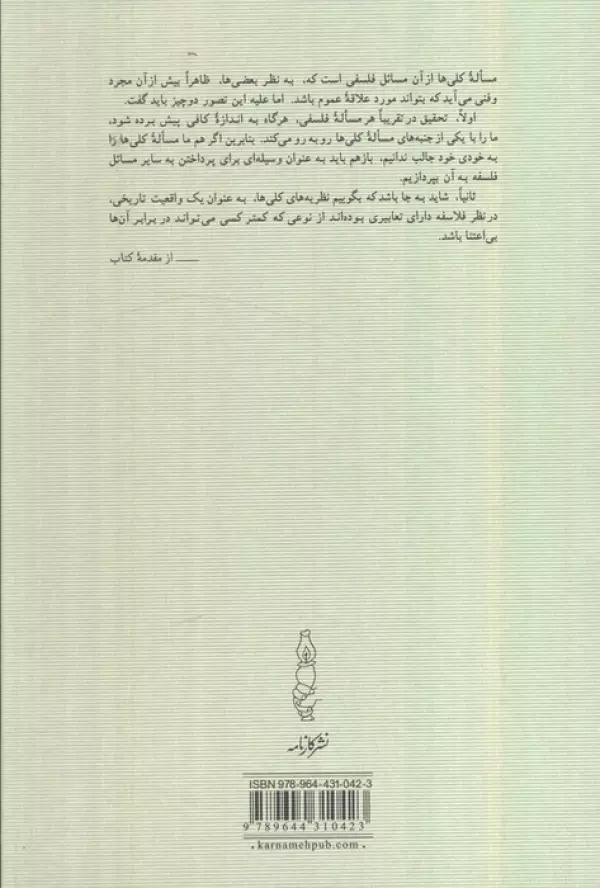 مسألهٔ کلی‌ها از آن مسائل فلسفی است که، به نظر بعضی‌ها، ظاهراً بیش از آن مجرد
و فنی می‌آید که بتواند مورد علاقهٔ عموم باشد. اما علیه این تصور دو چیز باید گفت.
اولاً، تحقیق در تقریباً هر مسألهٔ فلسفی، هرگاه به اندازهٔ کافی پیش برده شود،
ما را با یکی از جنبه‌های مسألهٔ کلی‌ها رو به رو می‌کند. بنابرین اگر هم ما مسألهٔ کلی‌ها را
به خودی خود جالب ندانیم، باز هم باید به عنوان وسیله‌ای برای پرداختن به سایر مسائل
فلسفه به آن بپردازیم.
ثانیاً، شاید به جا باشد که بگوییم نظریه‌های کلی‌ها، به عنوان یک واقعیت تاریخی،
در نظر فلاسفه دارای تعابیری بوده‌اند از نوعی که کمتر کسی می‌تواند در برابر آن‌ها
بی‌اعتنا باشد.
—— از مقدمهٔ کتاب
نشر کارنامه
ISBN 978-964-431-042-3
9 789644 310423
. karnamehpub.com .